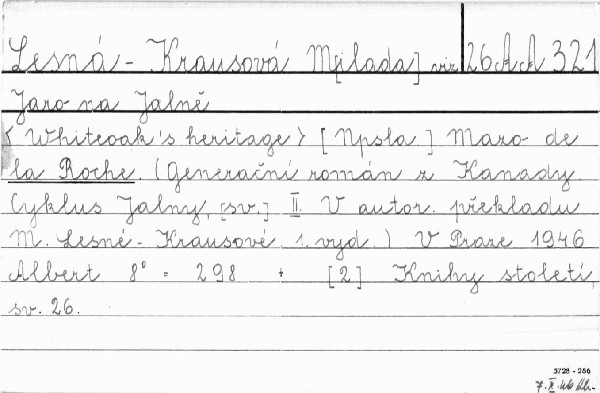 Lesná - Krausová M[ilada] viz 26 A A 321
Jaro na Jalně
< Whiteoak's heritage > [ Npsla ] Mazo de
la Roche. (Generační román z Kanady
Cyklus Jalny, [sv.] II. V autor. překladu
M. Lesné - Krausové. 1. vyd.) V Praze 1946
Albert 8° = 298 + [2] Knihy století,
sv. 26.
5728 - 266